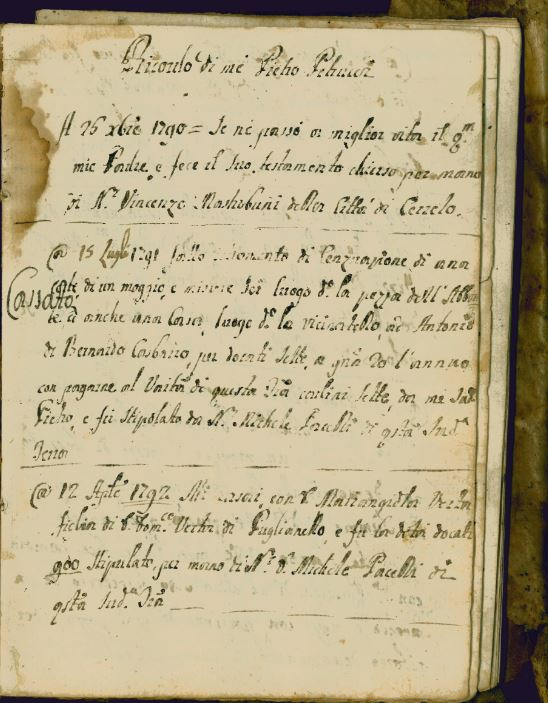 Ricordo di me Pietro
A 26 xbre 1790 = Se nè passò a miglior vita il qm
mio Padre, e fece il suo testamento chiuso per mano
di Nr Vincenzo Mastrobuni della Città di Cerreto.
A 15 Lugl 1791 fatto di Censuazione di una
Cassato
corte di un moggio, e misure sei luogo do la pezza dell' Abba
te. et anche una Casa, luogo do la vicinatella, ad Antonio
di Bernardo per docati sette, e gna 20 l'anno
con pagarne al Unità di questa Trà carlini sette, da me Sud
Pietro, e fù stipolato da Nr Michele Pacelli di qsta Sud
Terra
A 12 Aple 1792 Mi casai con Da Mariangiola Vecchi
figlia di D. Domco Vecchi di Puglianello, e fù la dota docati
900 stipulato per mano di Nr Dn Michele Pacelli di
qsta Suda Trà